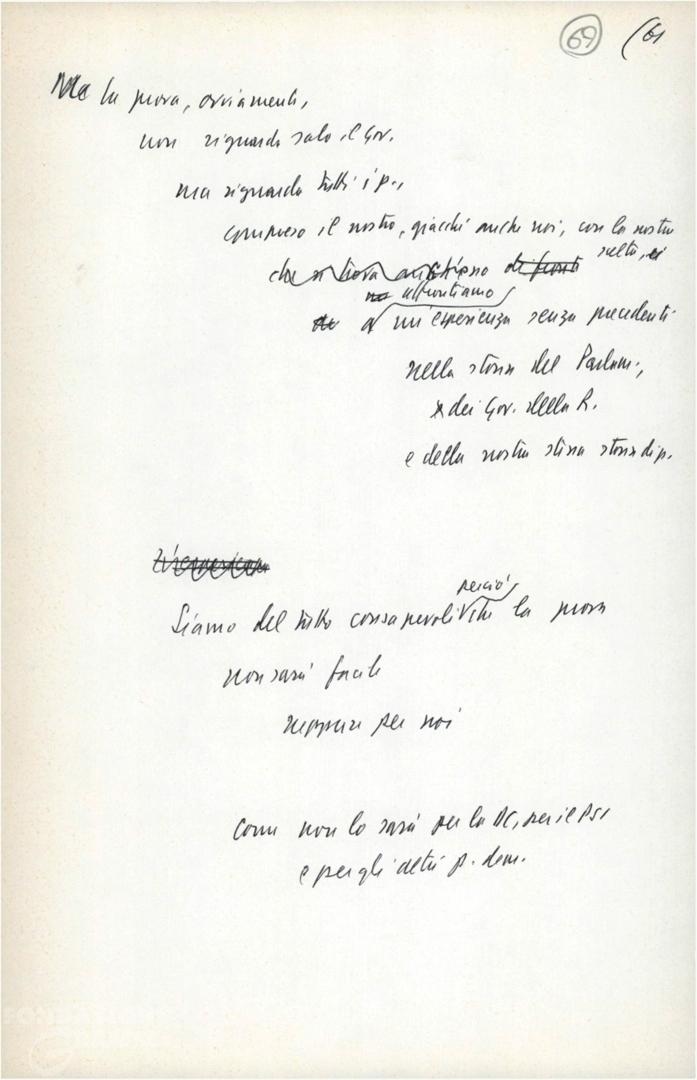 69 (61
Ma la prova, ovviamente,
non riguarda solo il Gov.
ma riguarda tutti i p.,
compreso il nostro, giacché anche noi, con la nostra
scelta,
che si trova anch'esso di fronte
affrontiamo
un'esperienza senza precedenti
nella storia del Parlam.,
dei Gov. della R.
e della nostra stessa storia di p.
perciò
Siamo del tutto consapevoli che la prova
non sarà facile
neppure per noi
come non lo sarà per la DC, per il PSI
e per gli altri p. dem.